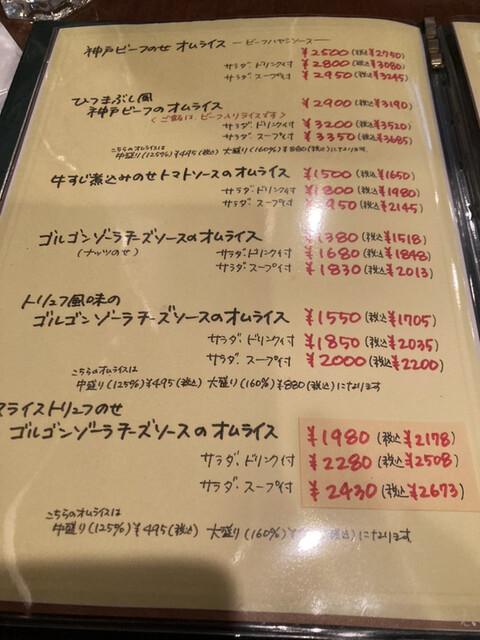 神戸ビーフのせ オムライス ―ビーフハヤシソース― ¥2500(税込¥2750)
サラダ、ドリンク付 ¥2800(税込¥3080)
サラダ・スープ付 ¥2950(税込¥3245)
ひつまぶし風
神戸ビーフのオムライス ¥2900(税込¥3190)
(ご飯は、ビーフ入りライスです)
サラダ・ドリンク付 ¥3200(税込¥3520)
サラダ・スープ付 ¥3350(税込¥3685)
こちらのオムライスは
中盛り(125%)¥495(税込) 大盛り(160%)¥880(税込)になります
牛すじ煮込みのせトマトソースのオムライス ¥1500(税込¥1650)
サラダ・ドリンク付 ¥1800(税込¥1980)
サラダ・スープ付 950(税込¥2145)
ゴルゴンゾーラチーズソースのオムライス ¥1380(税込¥1518)
(ナッツのせ)
サラダ・ドリンク付 ¥1680(税込¥1848)
サラダ・スープ付 ¥1830(税込¥2013)
トリュフ風味の
ゴルゴンゾーラチーズソースのオムライス ¥1550(税込¥1705)
サラダ、ドリンク付 ¥1850(税込¥2035)
サラダ・スープ付 ¥2000(税込¥2200)
こちらのオムライスは
中盛り(125%)¥495(税込) 大盛り(160%)¥880(税込)になります
スライストリュフのせ
ゴルゴンゾーラチーズソースのオムライス ¥1980(税込¥2178)
サラダ、ドリンク付 ¥2280(税込¥2508)
サラダ・スープ付 ¥2430(税込¥2673)
こちらのオムライスは
中盛り(125%)¥495(税込) 大盛り(160%) (税込)になります